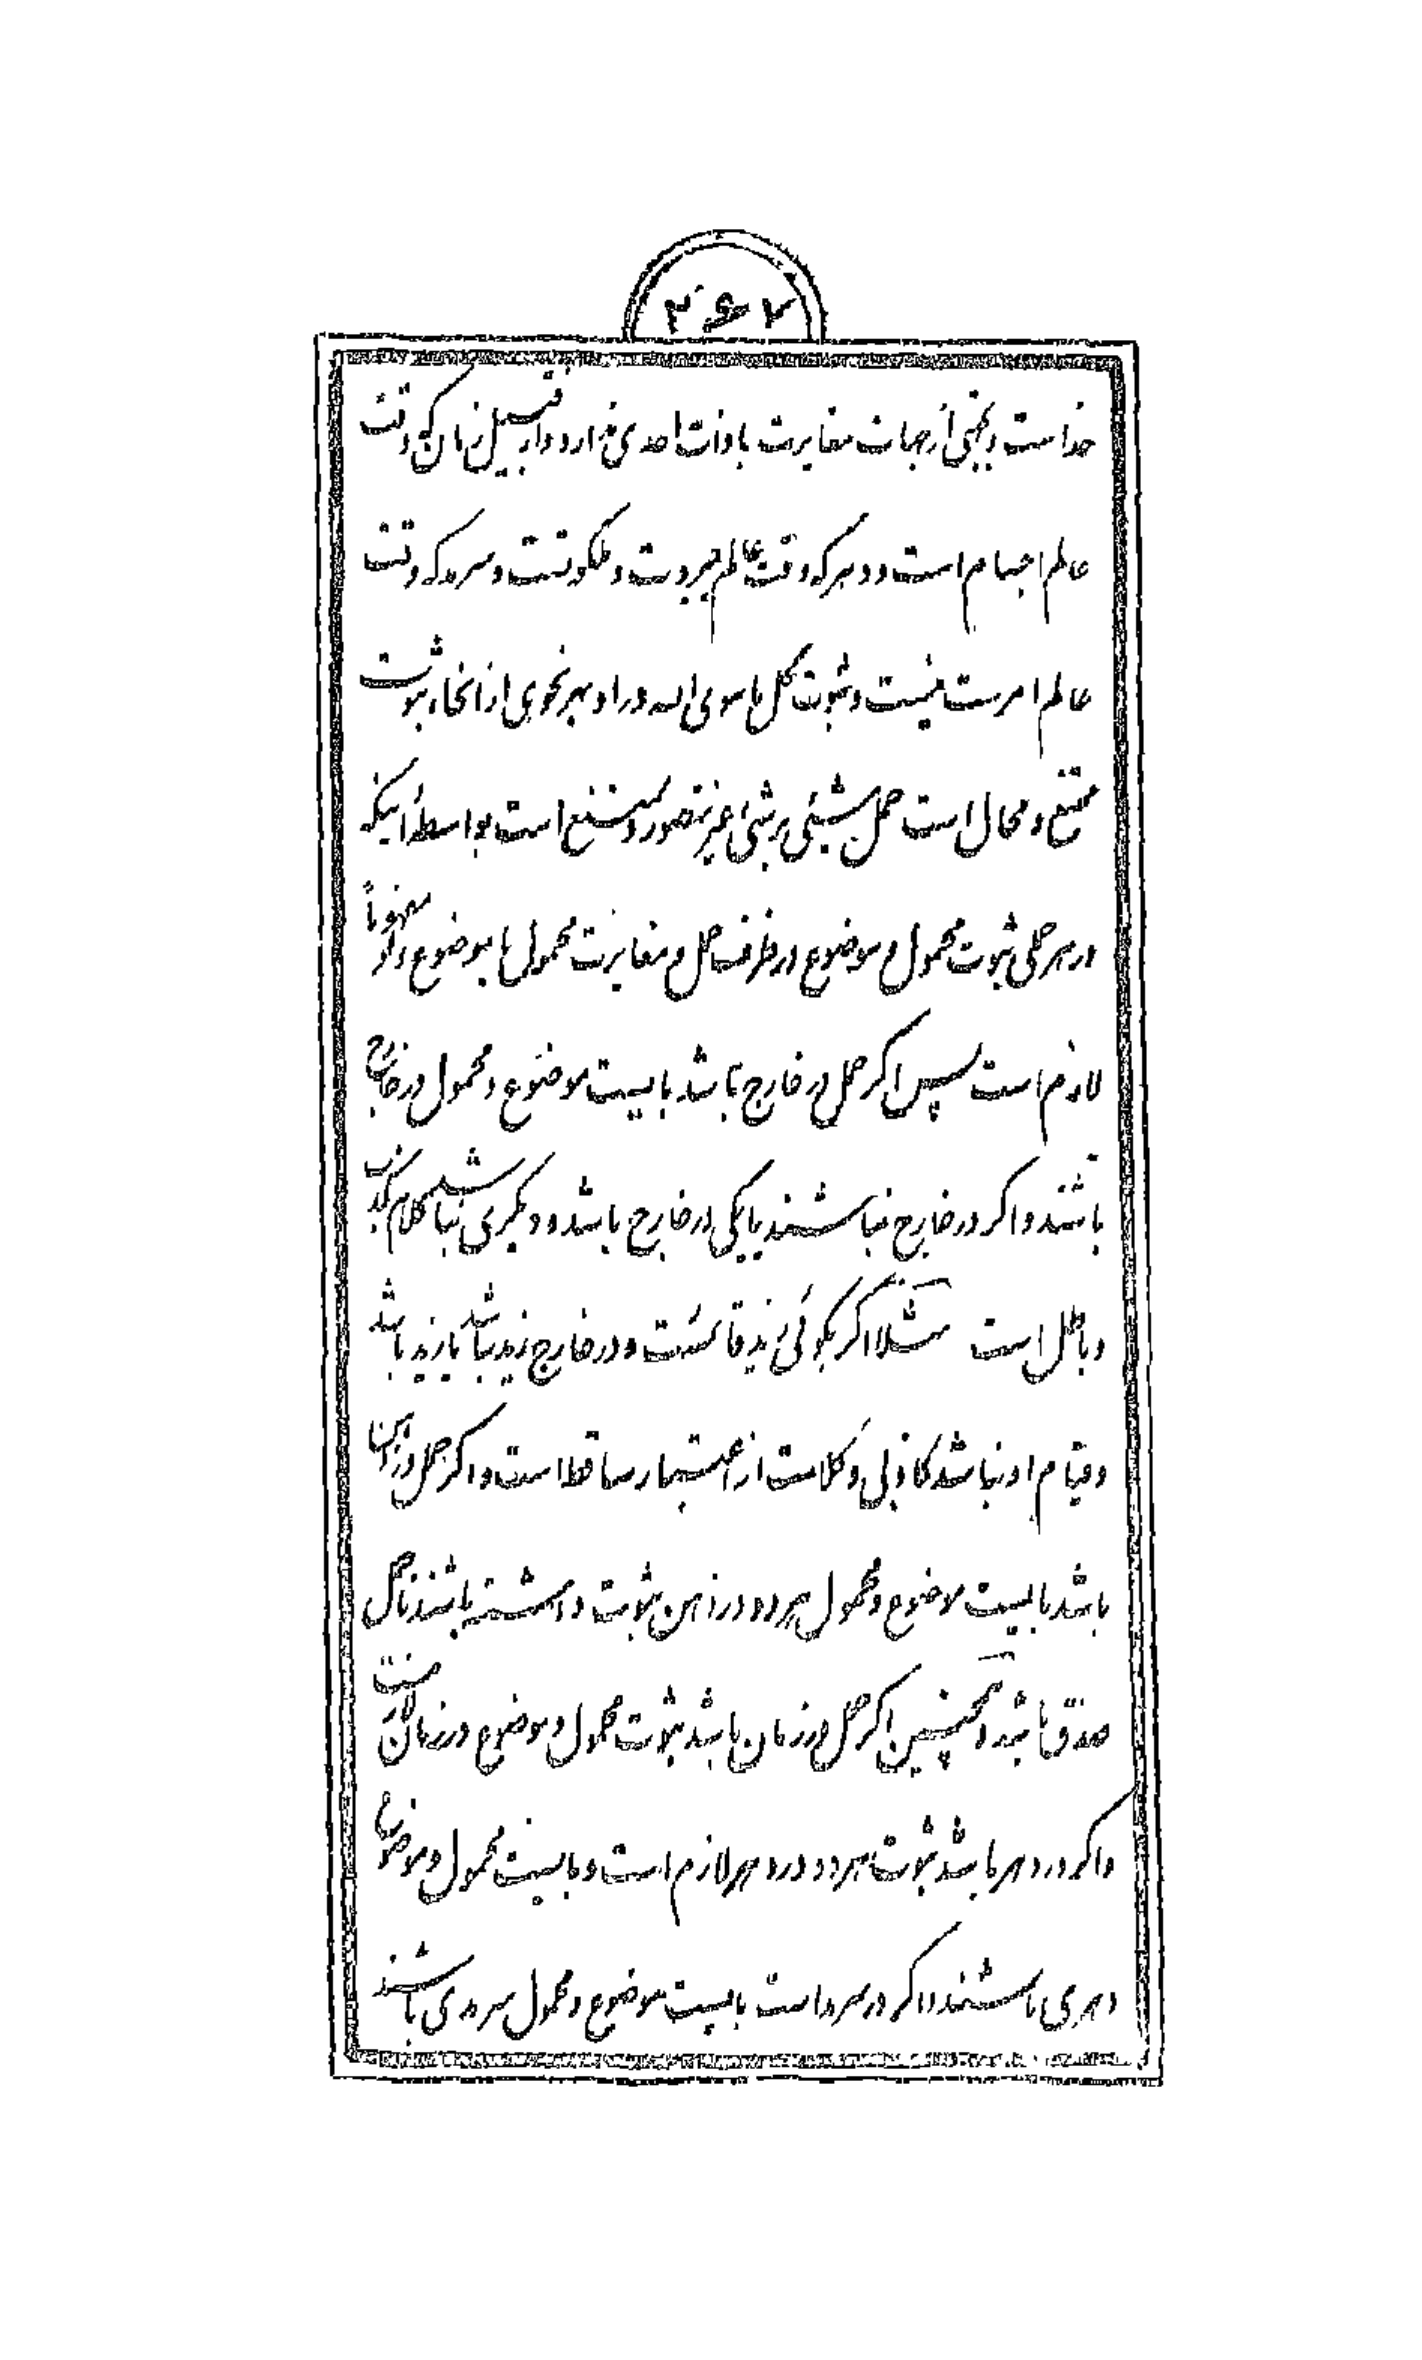 ۲۶۷
خداست و بجهتی از جهات مغایرت با ذات احدی ندارد و از قبیل زمان که وقت
عالم اجسام است و دهر که وقت عالم جبروت و ملکوتست و سرمد که وقت
عالم امرست نیست و ثبوت کل ما سوی الله در او بهر نحوی از انحاء ثبوت
ممتنع و محال است حمل شیئی بر شیئی غیر متصور و ممتنع است بواسطهٔ اینکه
در هر حملی ثبوت محمول و موضوع در ظرف حمل و مغایرت محمول با موضوع ولو مفهوماً
لازم است پس اکر حمل در خارج باشد بایست موضوع و محمول در خارج
باشند و اکر در خارج نباشند یا یکی در خارج باشد و دیکری نباشد کلام کذب
و باطل است مثلا اکر بکوئی زید قائمست و در خارج زید نباشد یا زید باشد
و قیام او نباشد کاذبی و کلامت از اعتبار ساقط است و اکر حمل در ذهن
باشد بایست موضوع و محمول هر دو در ذهن ثبوت داشته باشند تا حمل
صدق باشد و همچنین اکر حمل در زمان باشد ثبوت محمول و موضوع در زمان لازمست
و اکر در دهر باشد ثبوت هر دو در دهر لازم است و بایست محمول و موضوع
دهری باشند و اکر در سرمد است بایست موضوع و محمول سرمدی باشند